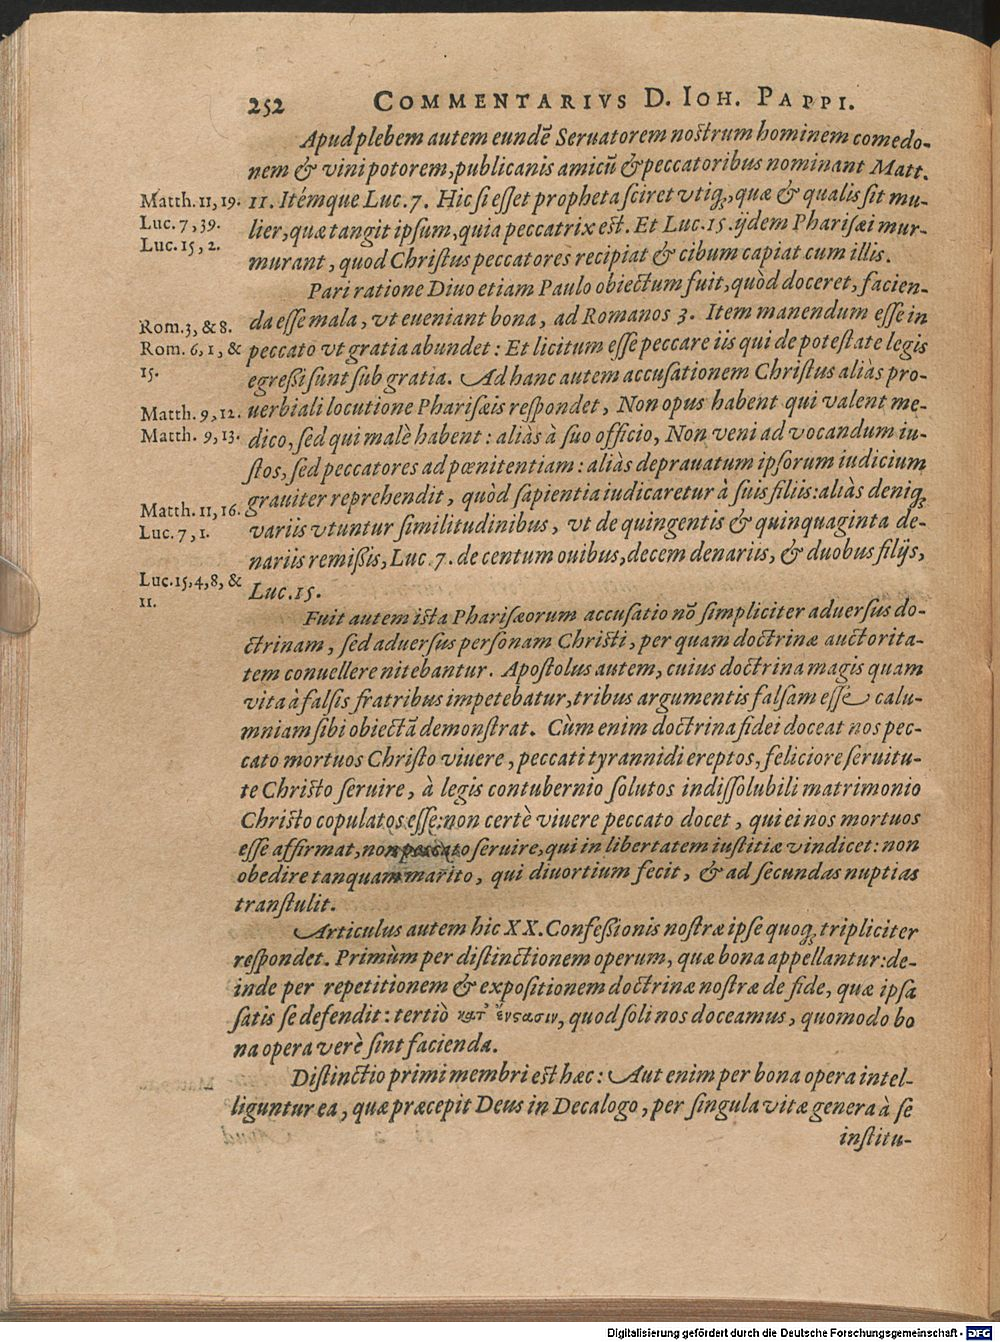 252 COMMENTARIVS D. IOH. PAPPI.
Apud plebem autem eundẽ Seruatorem nostrum hominem comedo-
nem & vini potorem, publicanis amicũ & peccatoribus nominant Matt.
Matth. 11, 19.
11. Itémque Luc. 7. Hic si esset propheta sciret vtiq;, quæ & qualis sit mu-
Luc. 7, 39.
lier, quæ tangit ipsum, quia peccatrix est. Et Luc. 15. ijdem Pharisæi mur-
Luc. 15, 2.
murant, quod Christus peccatores recipiat & cibum capiat cum illis.
Pari ratione Diuo etiam Paulo obiectum fuit, quòd doceret, facien-
Rom. 3, & 8.
da esse mala, vt eueniant bona, ad Romanos 3. Item manendum esse in
Rom. 6, 1, &
peccato vt gratia abundet: Et licitum esse peccare iis qui de potestate legis
15.
egreßi sunt sub gratia. Ad hanc autem accusationem Christus aliàs pro-
Matth. 9, 12.
uerbiali locutione Pharisæis respondet, Non opus habent qui valent me-
Matth. 9, 13.
dico, sed qui malè habent: aliàs à suo officio, Non veni ad vocandum iu-
stos, sed peccatores ad pœnitentiam: aliàs deprauatum ipsorum iudicium
Matth. 11, 16.
grauiter reprehendit, quòd sapientia iudicaretur à suis filiis: aliàs deniq;
Luc. 7, 1.
variis vtuntur similitudinibus, vt de quingentis & quinquaginta de-
nariis remißis, Luc. 7. de centum ouibus, decem denariis, & duobus filijs,
Luc. 15, 4, 8, &
11.
Luc. 15.
Fuit autem ista Pharisæorum accusatio nõ simpliciter aduersus do-
ctrinam, sed aduersus personam Christi, per quam doctrinæ auctorita-
tem conuellere nitebantur. Apostolus autem, cuius doctrina magis quam
vita à falsis fratribus impetebatur, tribus argumentis falsam esse calu-
mniam sibi obiectã demonstrat. Cùm enim doctrina fidei doceat nos pec-
cato mortuos Christo viuere, peccati tyrannidi ereptos, feliciore seruitu-
te Christo seruire, à legis contubernio solutos indissolubili matrimonio
Christo copulatos esse: non certè viuere peccato docet, qui ei nos mortuos
esse affirmat, non peccato seruire, qui in libertatem iustitiæ vindicet: non
obedire tanquam marito, qui diuortium fecit, & ad secundas nuptias
transtulit.
Articulus autem hic XX. Confeßionis nostræ ipse quoq; tripliciter
respondet. Primùm per distinctionem operum, quæ bona appellantur: de-
inde per repetitionem & expositionem doctrinæ nostræ de fide, quæ ipsa
satis se defendit: tertiò κατ' ἔνστασιν, quod soli nos doceamus, quomodo bo
na opera verè sint facienda.
Distinctio primi membri est hæc: Aut enim per bona opera intel-
liguntur ea, quæ præcepit Deus in Decalogo, per singula vitæ genera à se
institu-
Digitalisierung gefördert durch die Deutsche Forschungsgemeinschaft - DFG